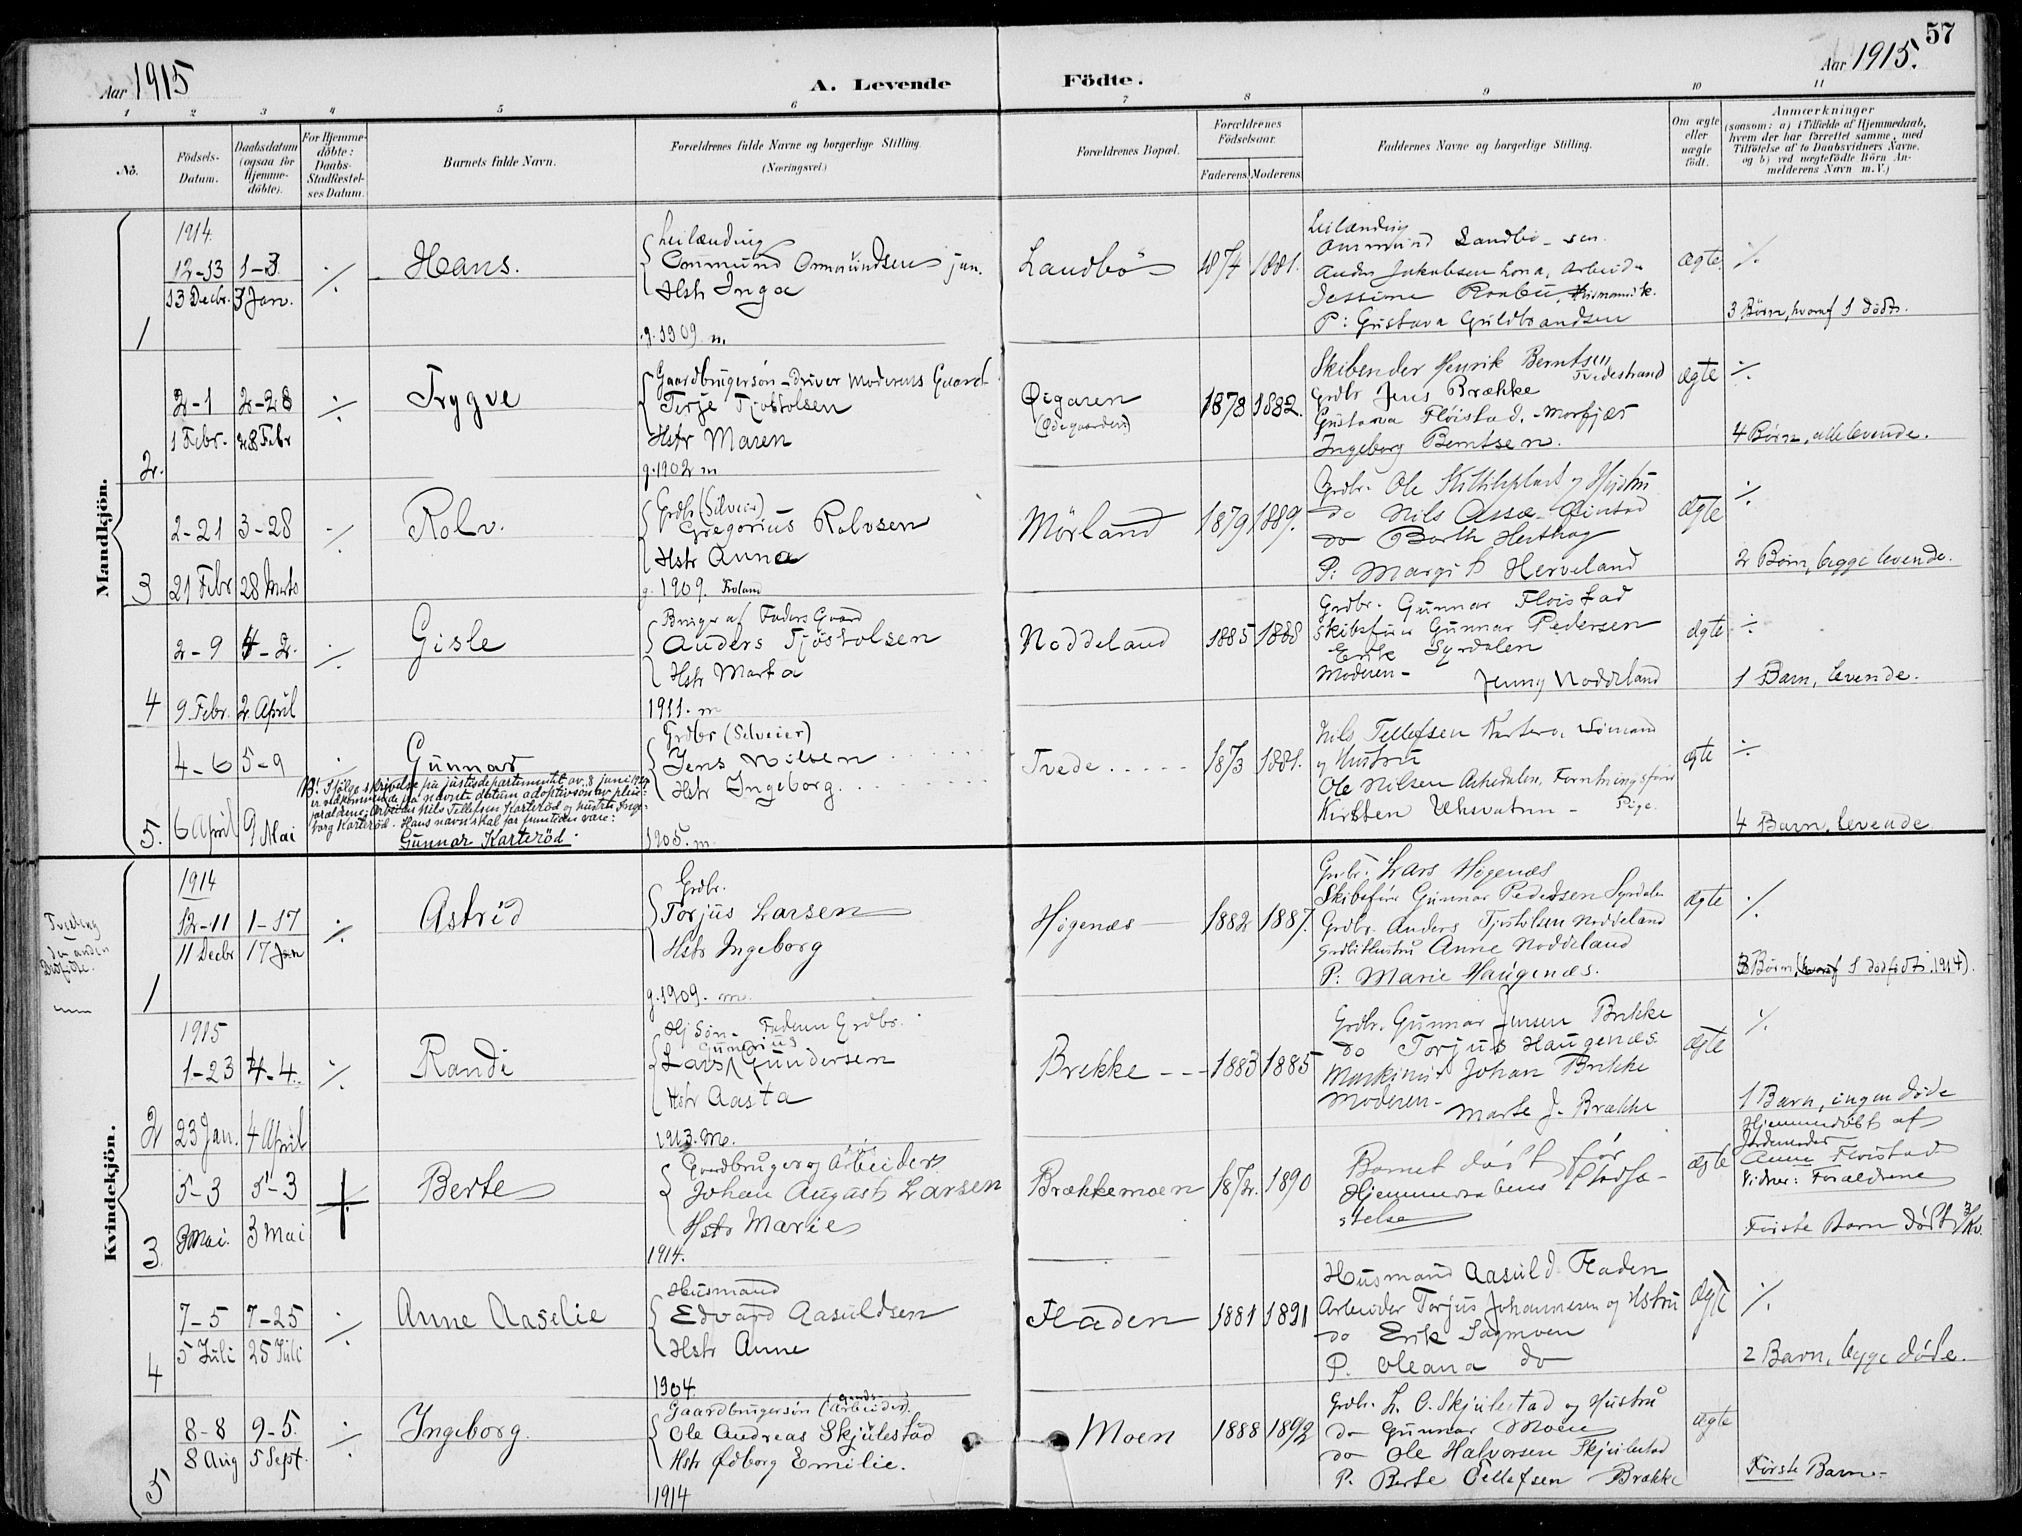 57
Aar 1915
A. Levende Födte.
Aar 1915.
1 2 3 4 5 6 7 8 9 10 11
No.
Födsels-
Datum.
Daabsdatum
(ogsaa for
Hjemme-
döbte).
For Hjemme-
döbte:
Daabs-
Stadfæstel-
ses Datum.
Barnets fulde Navn.
Forældrenes fulde Navne og borgerlige Stilling.
(Næringsvei.)
Forældrenes Bopæl.
Forældrenes
Födselsaar.
Faderens. Moderens.
Faddernes Navne og borgerlige Stilling.
Om ægte
eller
uægte
födt.
Anmærkninger
(saasom: a) i Tilfælde af Hjemmedaab,
hvem der har forrettet samme, med
Tilföielse af to Daabsvidners Navne,
og b) ved uægtefödte Börn An-
melderens Navn m.V.)
Mandkjön.
1
1914
12-13
13 Decbr.
1-3
3 Jan.
Hans.
Leilænding
Ommund Ommundsen jun.
Hstr Inga
g. 1909 m.
Landbö
1874
1881.
Leilænding
Ommund Landbö
Anders Jakobsen Lona, Arbeid-
Jessine
P: Gustava Guldbrandsen
ægte
%
3 Börn, hvoraf 1 dödt.
2.
2-1
1 Febr.
2-28
28 Febr
÷
Trygve
Gaardbrugersön - driver Moderens Gaard
Terje Tjöstolsen
Hstr Maren
g. 1902 m
Öigaren
(Ödegaarden)
1878
1882.
Henrik Berntsen
Tvedestrand
Grdbr Jens Brække
Gustava Flöistad. - Morfjær
Ingeborg Berntsen.
ægte
%
4 Börn, alle levende.
3
2-21
21 Febr
3-28
28 Marts
÷
Rolv.
Grdbr (Selveier)
Gregorius Rolvsen
Hstr Anna
g. 1909. Froland
Mörland
1879
1889.
Grdbr. Ole
og Hustru
do Nils
do
P: Margit Herveland
ægte
%
2 Börn, begge levende.
4
2-9
9 Febr.
4-2.
2 April
÷
Gisle
Bruger af Faders Gaard
Anders Tjöstolsen
Hstr Marta
1911. m
Noddeland
1885
1888
Grdbr. Gunnar Flöistad
Skibsförer Gunnar Pedersen
Erik Syrdalen
Moderen -
Jenny Noddeland
ægte
÷
1 Barn, levende.
5.
4-6
6 April
5-9
9 Mai
÷
Gunnar
Nb! Ifölge skrivelse fra justisdepartementet av 8 juni 1920
er vedkommende fra nævnte datum adoptivsön av pleie-
forældrene: Arbeider Nils Tellefsen Karteröd og hustru Inge-
borg Karteröd. Hans navn skal for fremtiden være:
Gunnar Karteröd.
Grdbr (Selveier)
Jens Nilsen
Hstr Ingeborg.
1905. m.
Tvede
1873
1881.
Nils Tellefsen Karteröd, Sömand
og Hustru
Ole Nilsen Askedalen, Forretningsförer
Kirsten - Pige.
ægte
÷
4 Barn, levende
Kvindekjön.
Tvilling
den anden
Dödfödt.
1
1914
12-11
11 Decbr
1-17
17 Jan
÷
Astrid
Grdbr.
Torjus Larsen
Hstr Ingeborg
g. 1909. m.
Högenæs
1882
1887.
Grdbr. Lars Högenæs
Skibsförer Gunnar Pedersen Syrdalen
Grdbr. Anders Tjöstolsen Noddeland
Anne Noddeland
P: Marie Haugenæs.
ægte
%
3 Börn (hvoraf 1 dödfödt i 1914).
2
1915
1-23
23 Jan.
4-4.
4 April
÷
Randi
Hj Sön - Faderen Grdbr.
Gunerius
Lars Gundersen
Hstr Aasta
1913. m.
Brekke
1883
1885
Grdbr. Gunnar Jensen Brekke
do Torjus Haugenæs
Maskinist Johan Brekke
Moderen -
Marte J. Brække
ægte
%
1 Barn, ingen döde
3
5-3
3 Mai.
5-3
3 Mai
Berte
Gaardbruger og Arbeider
Johan August Larsen
Hstr Marie
1914.
Brækkemoen
1872.
1890
Barnet dödt för
Hjemmedaabens Stadfæ-
stelse
ægte
Hjemmedöbt af
Jordemoder
Anne Flöistad
Vidner: Forældrene
Förste Barn dödt
4
7-5
5 Juli
7-25
25 Juli
÷
Anne Aaselie
Husmand
Edvard Aasuldsen
Hstr Anne
1904.
Fladen
1881
1891
Husmand Aasuld Fladen
Arbeider Torjus Johannesen og Hstru
do Erik Sagmoen
P. Oleana do
ægte
%
2 Barn, begge döde.
5
8-8
8 Aug
9-5.
5 Sept.
÷
Ingeborg.
Gaardbrugersön (Gaardsarbeider)
Ole Andreas Skjulestad
Hstr Ödborg Emilie.
1914
Moen
1888
1892
Grdbr. L. O. Skjulestad og Hustru
do Gunnar Moen
do Ole Halvorsen Skjulestad
P. Berte Tellefsen Brække
ægte
Förste Barn-